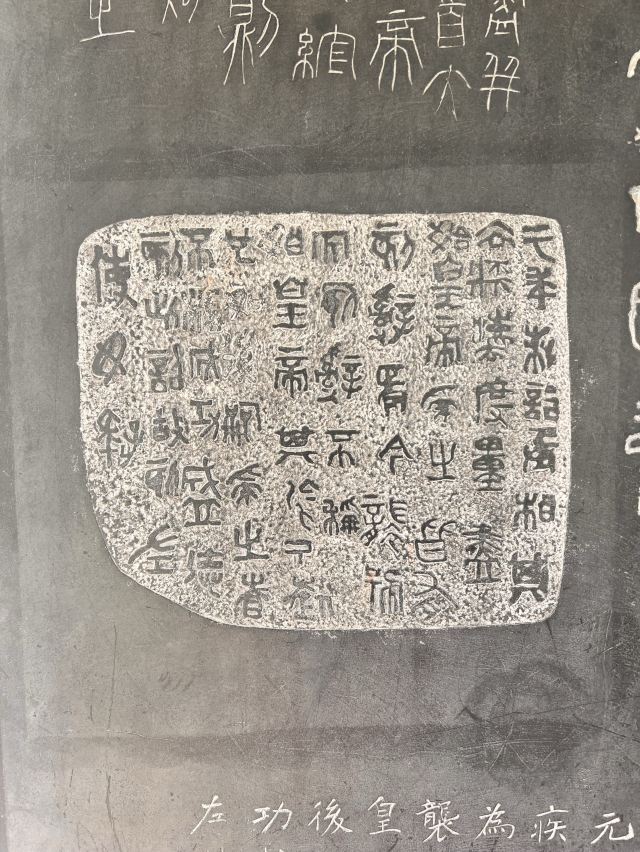 盡并
首大
帝
綰
則
之
元年制詔丞相斯
去疾法度量盡
始皇帝為之皆有
刻辭焉今襲號
而刻辭不稱
始皇帝其於久遠
也如後嗣為之者
不稱成功盛德
刻此詔故刻左
使毋疑
元
疾
為
襲
皇
後
功
左